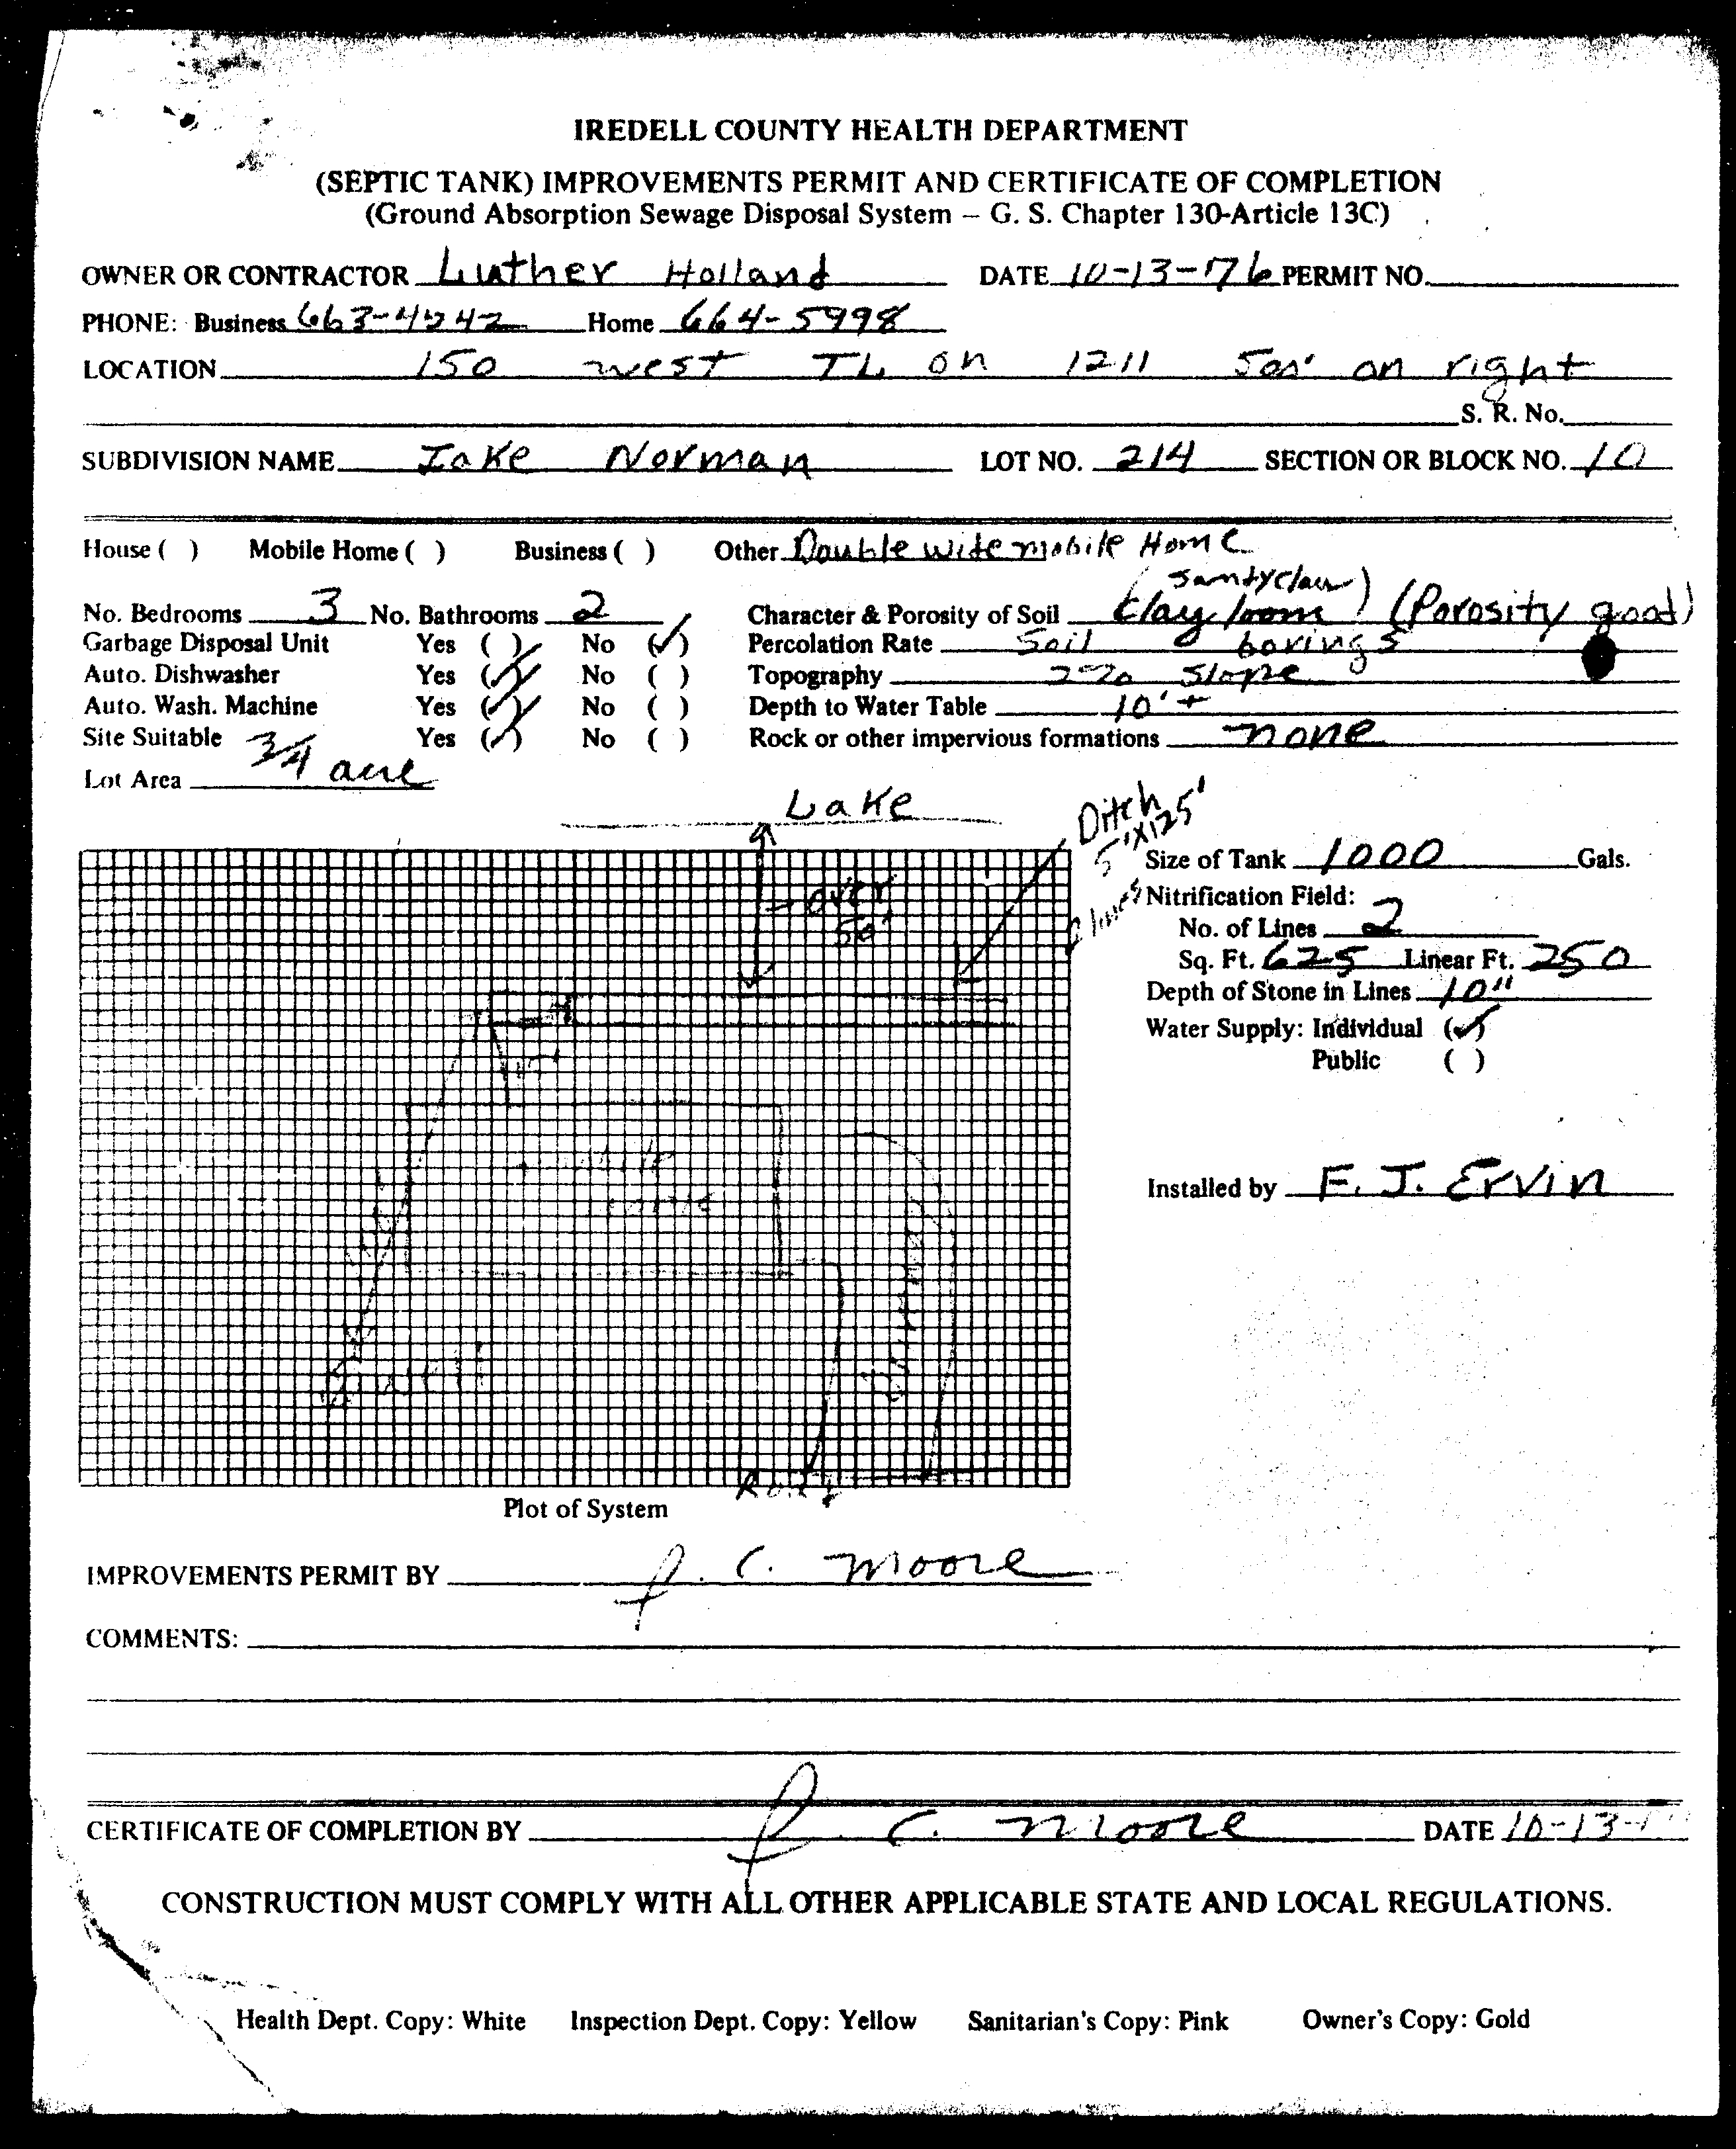 IREDELL COUNTY HEALTH DEPARTMENT
(SEPTIC TANK) IMPROVEMENTS PERMIT AND CERTIFICATE OF COMPLETION
(Ground Absorption Sewage Disposal System – G. S. Chapter 130-Article 13C)
OWNER OR CONTRACTOR Luther Holland DATE 10-13-76 PERMIT NO.
PHONE: Business 663-4242 Home 664-5998
LOCATION 150 west TL on 1211 500' on right
S. R. No.
SUBDIVISION NAME Lake Norman LOT NO. 214 SECTION OR BLOCK NO. 10
House ( ) Mobile Home ( ) Business ( ) Other Double wide mobile Home
No. Bedrooms 3 No. Bathrooms 2 Character & Porosity of Soil clay loom (sandy clay) (Porosity good)
Garbage Disposal Unit Yes ( ) No (✓) Percolation Rate Soil borings
Auto. Dishwasher Yes (✓) No ( ) Topography 2% slope
Auto. Wash. Machine Yes (✓) No ( ) Depth to Water Table 10'+
Site Suitable Yes (✓) No ( ) Rock or other impervious formations none
Lot Area 3/4 acre
Lake
Ditch
5'x125'
2 lines
over
50'
Size of Tank 1000 Gals.
Nitrification Field:
No. of Lines 2
Sq. Ft. 625 Linear Ft. 250
Depth of Stone in Lines 10"
Water Supply: Individual (✓)
Public ( )
Installed by F. J. Ervin
Road
Plot of System
IMPROVEMENTS PERMIT BY J. C. Moore
COMMENTS:
CERTIFICATE OF COMPLETION BY J. C. Moore DATE 10-13-
CONSTRUCTION MUST COMPLY WITH ALL OTHER APPLICABLE STATE AND LOCAL REGULATIONS.
Health Dept. Copy: White Inspection Dept. Copy: Yellow Sanitarian's Copy: Pink Owner's Copy: Gold